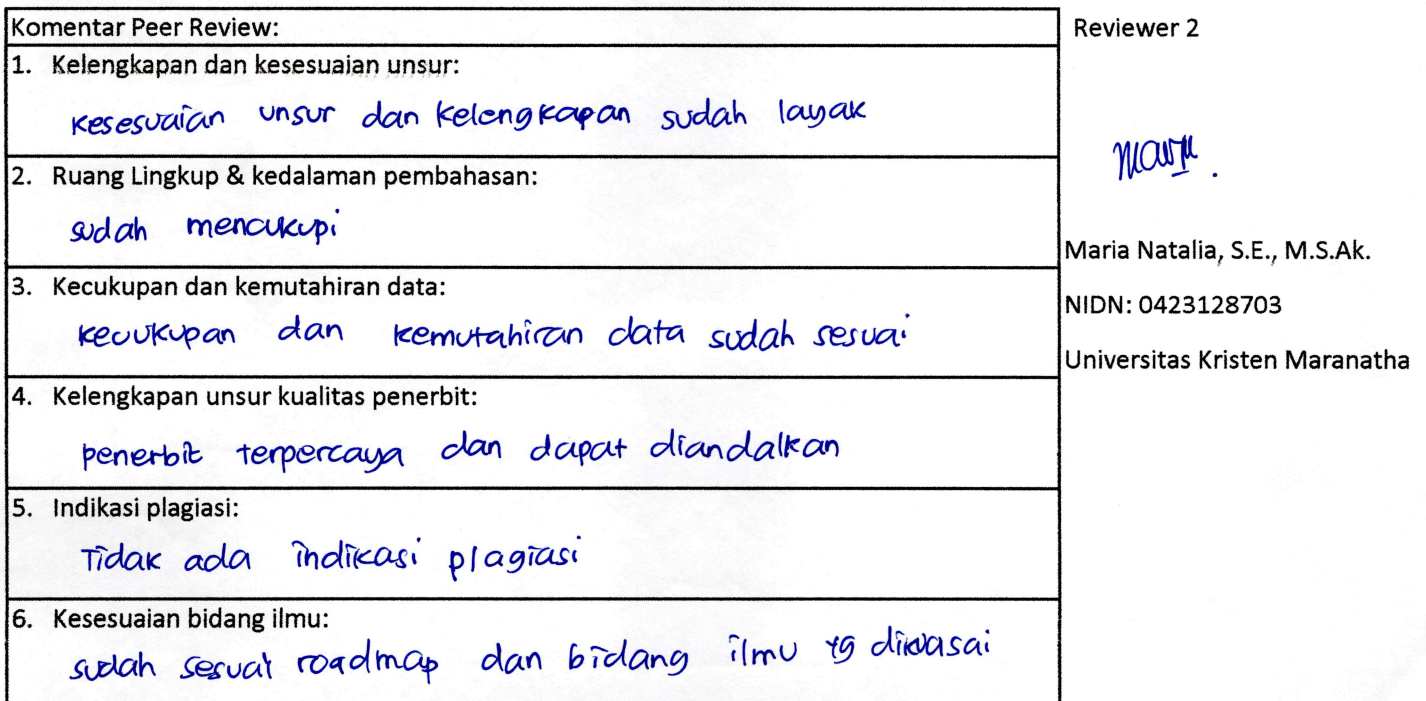 Komentar Peer Review:
1. Kelengkapan dan kesesuaian unsur:
Kesesuaian unsur dan kelengkapan sudah layak
2. Ruang Lingkup & kedalaman pembahasan:
sudah mencukupi
3. Kecukupan dan kemutahiran data:
kecukupan dan kemutahiran data sudah sesuai
4. Kelengkapan unsur kualitas penerbit:
penerbit terpercaya dan dapat diandalkan
5. Indikasi plagiasi:
Tidak ada indikasi plagiasi
6. Kesesuaian bidang ilmu:
sudah sesuai roadmap dan bidang ilmu yg dikuasai
Reviewer 2
Maria Natalia, S.E., M.S.Ak.
NIDN: 0423128703
Universitas Kristen Maranatha